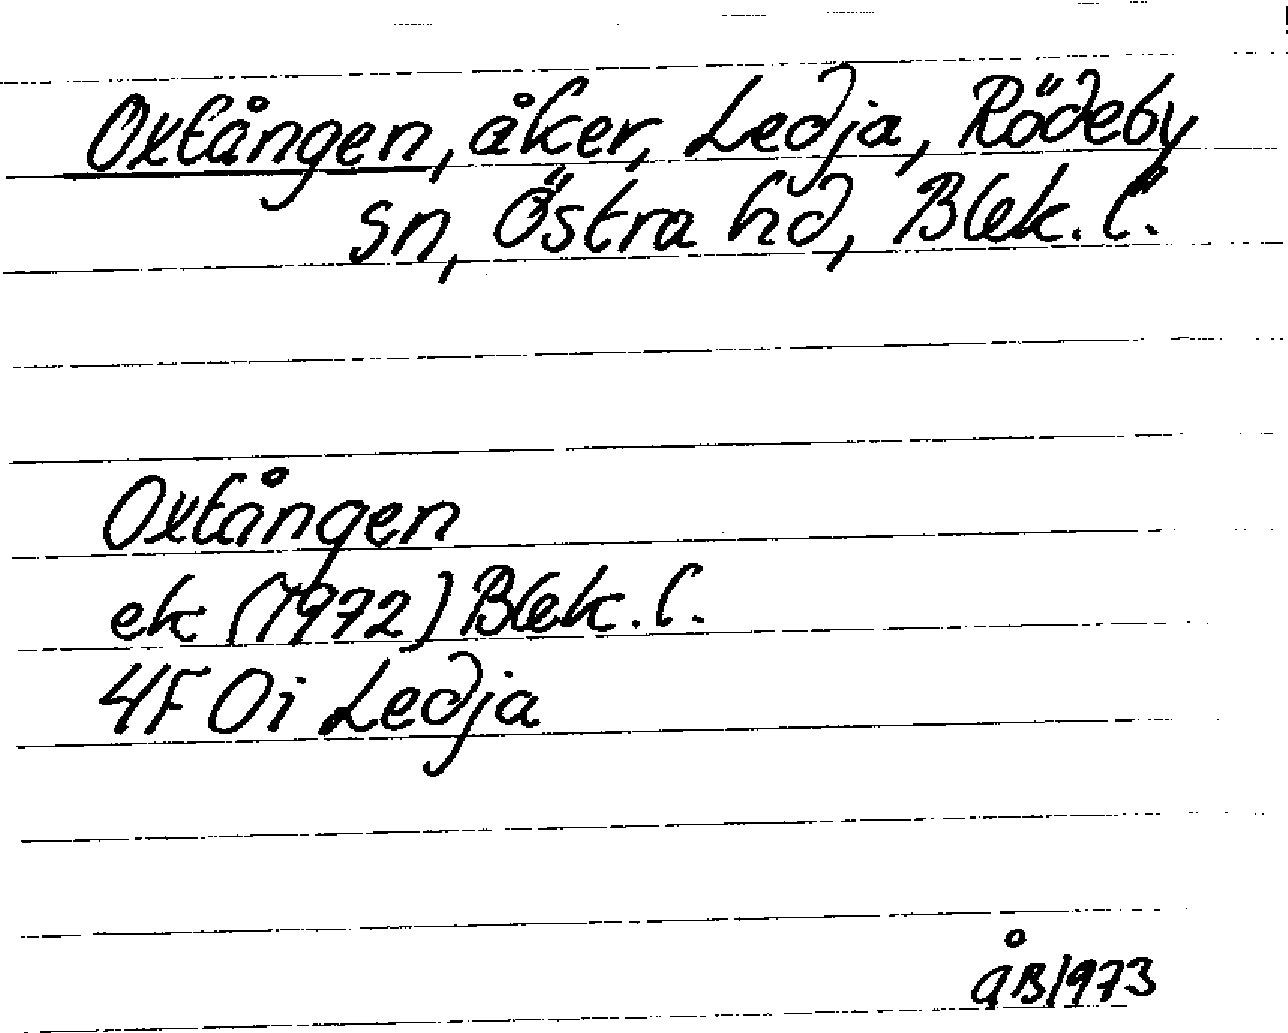 Oxtången, åker, Ledja, Rödeby
sn, Östra hd, Blek. l.
Oxtången
ek (1972) Blek. l.
4F 0i Ledja
åB 1973